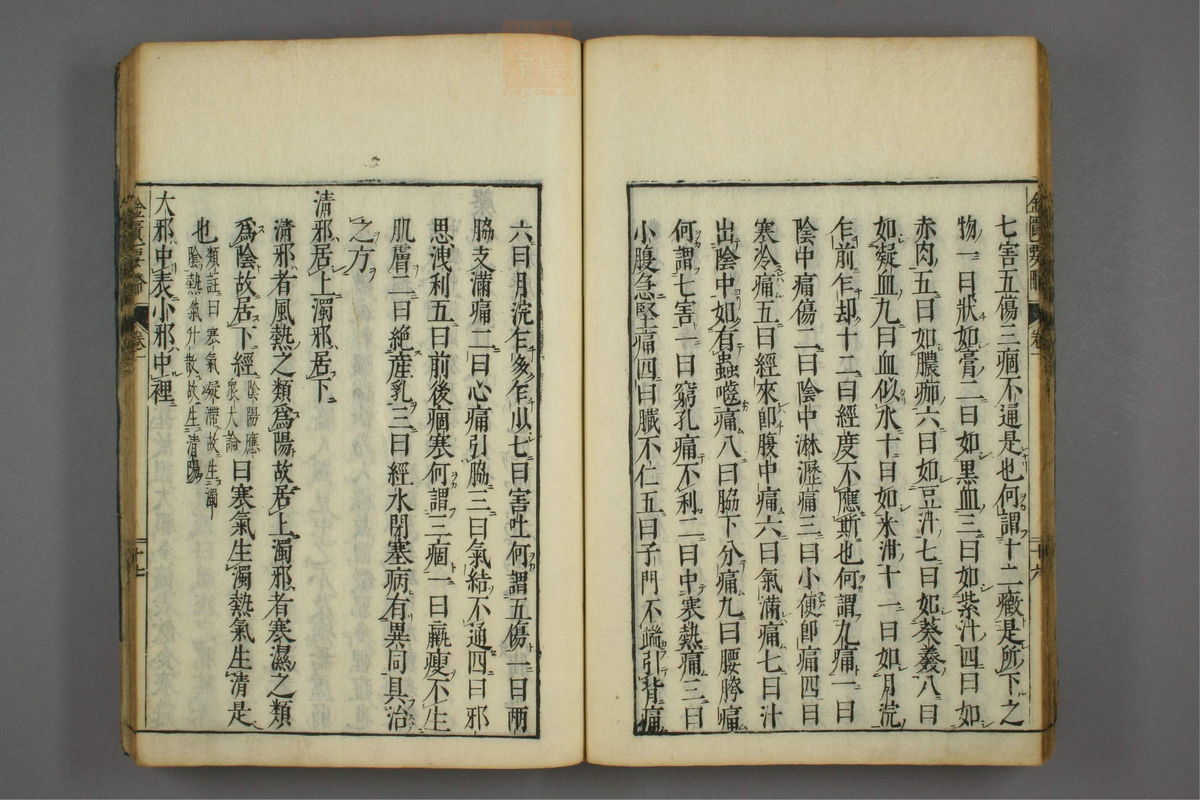 七害五傷三痼不通是也何謂十二癥是所下之
物一曰狀如膏二曰如黑血三曰如紫汁四曰如
赤肉五曰如膿痂六曰如豆汁七曰如葵羹八曰
如凝血九曰血似水十曰如米泔十一曰如月浣
乍前乍却十二曰經度不應斯也何謂九痛一曰
陰中痛傷二曰陰中淋瀝痛三曰小便即痛四曰
寒冷痛五曰經來即腹中痛六曰氣滿痛七曰汁
出陰中如有蟲嚙痛八曰脇下分痛九曰腰胯痛
何謂七害一曰窮孔痛不利二曰中寒熱痛三曰
小腹急堅痛四曰臟不仁五曰子門不端引背痛
六曰月浣乍多乍少七曰害吐何謂五傷一曰兩
脇支滿痛二曰心痛引脇三曰氣結不通四曰邪
思洩利五曰前後痼寒何謂三痼一曰羸瘦不生
肌膚二曰絶產乳三曰經水閉塞病有異同具治
之方
清邪居上濁邪居下
清邪者風熱之類爲陽故居上濁邪者寒濕之類
爲陰故居下經陰陽應象大論曰寒氣生濁熱氣生清是
也類註曰寒氣凝滯故生濁陰熱氣升散故生清陽
大邪中表小邪中裡
金匱要略 卷一
金匱要略 卷一